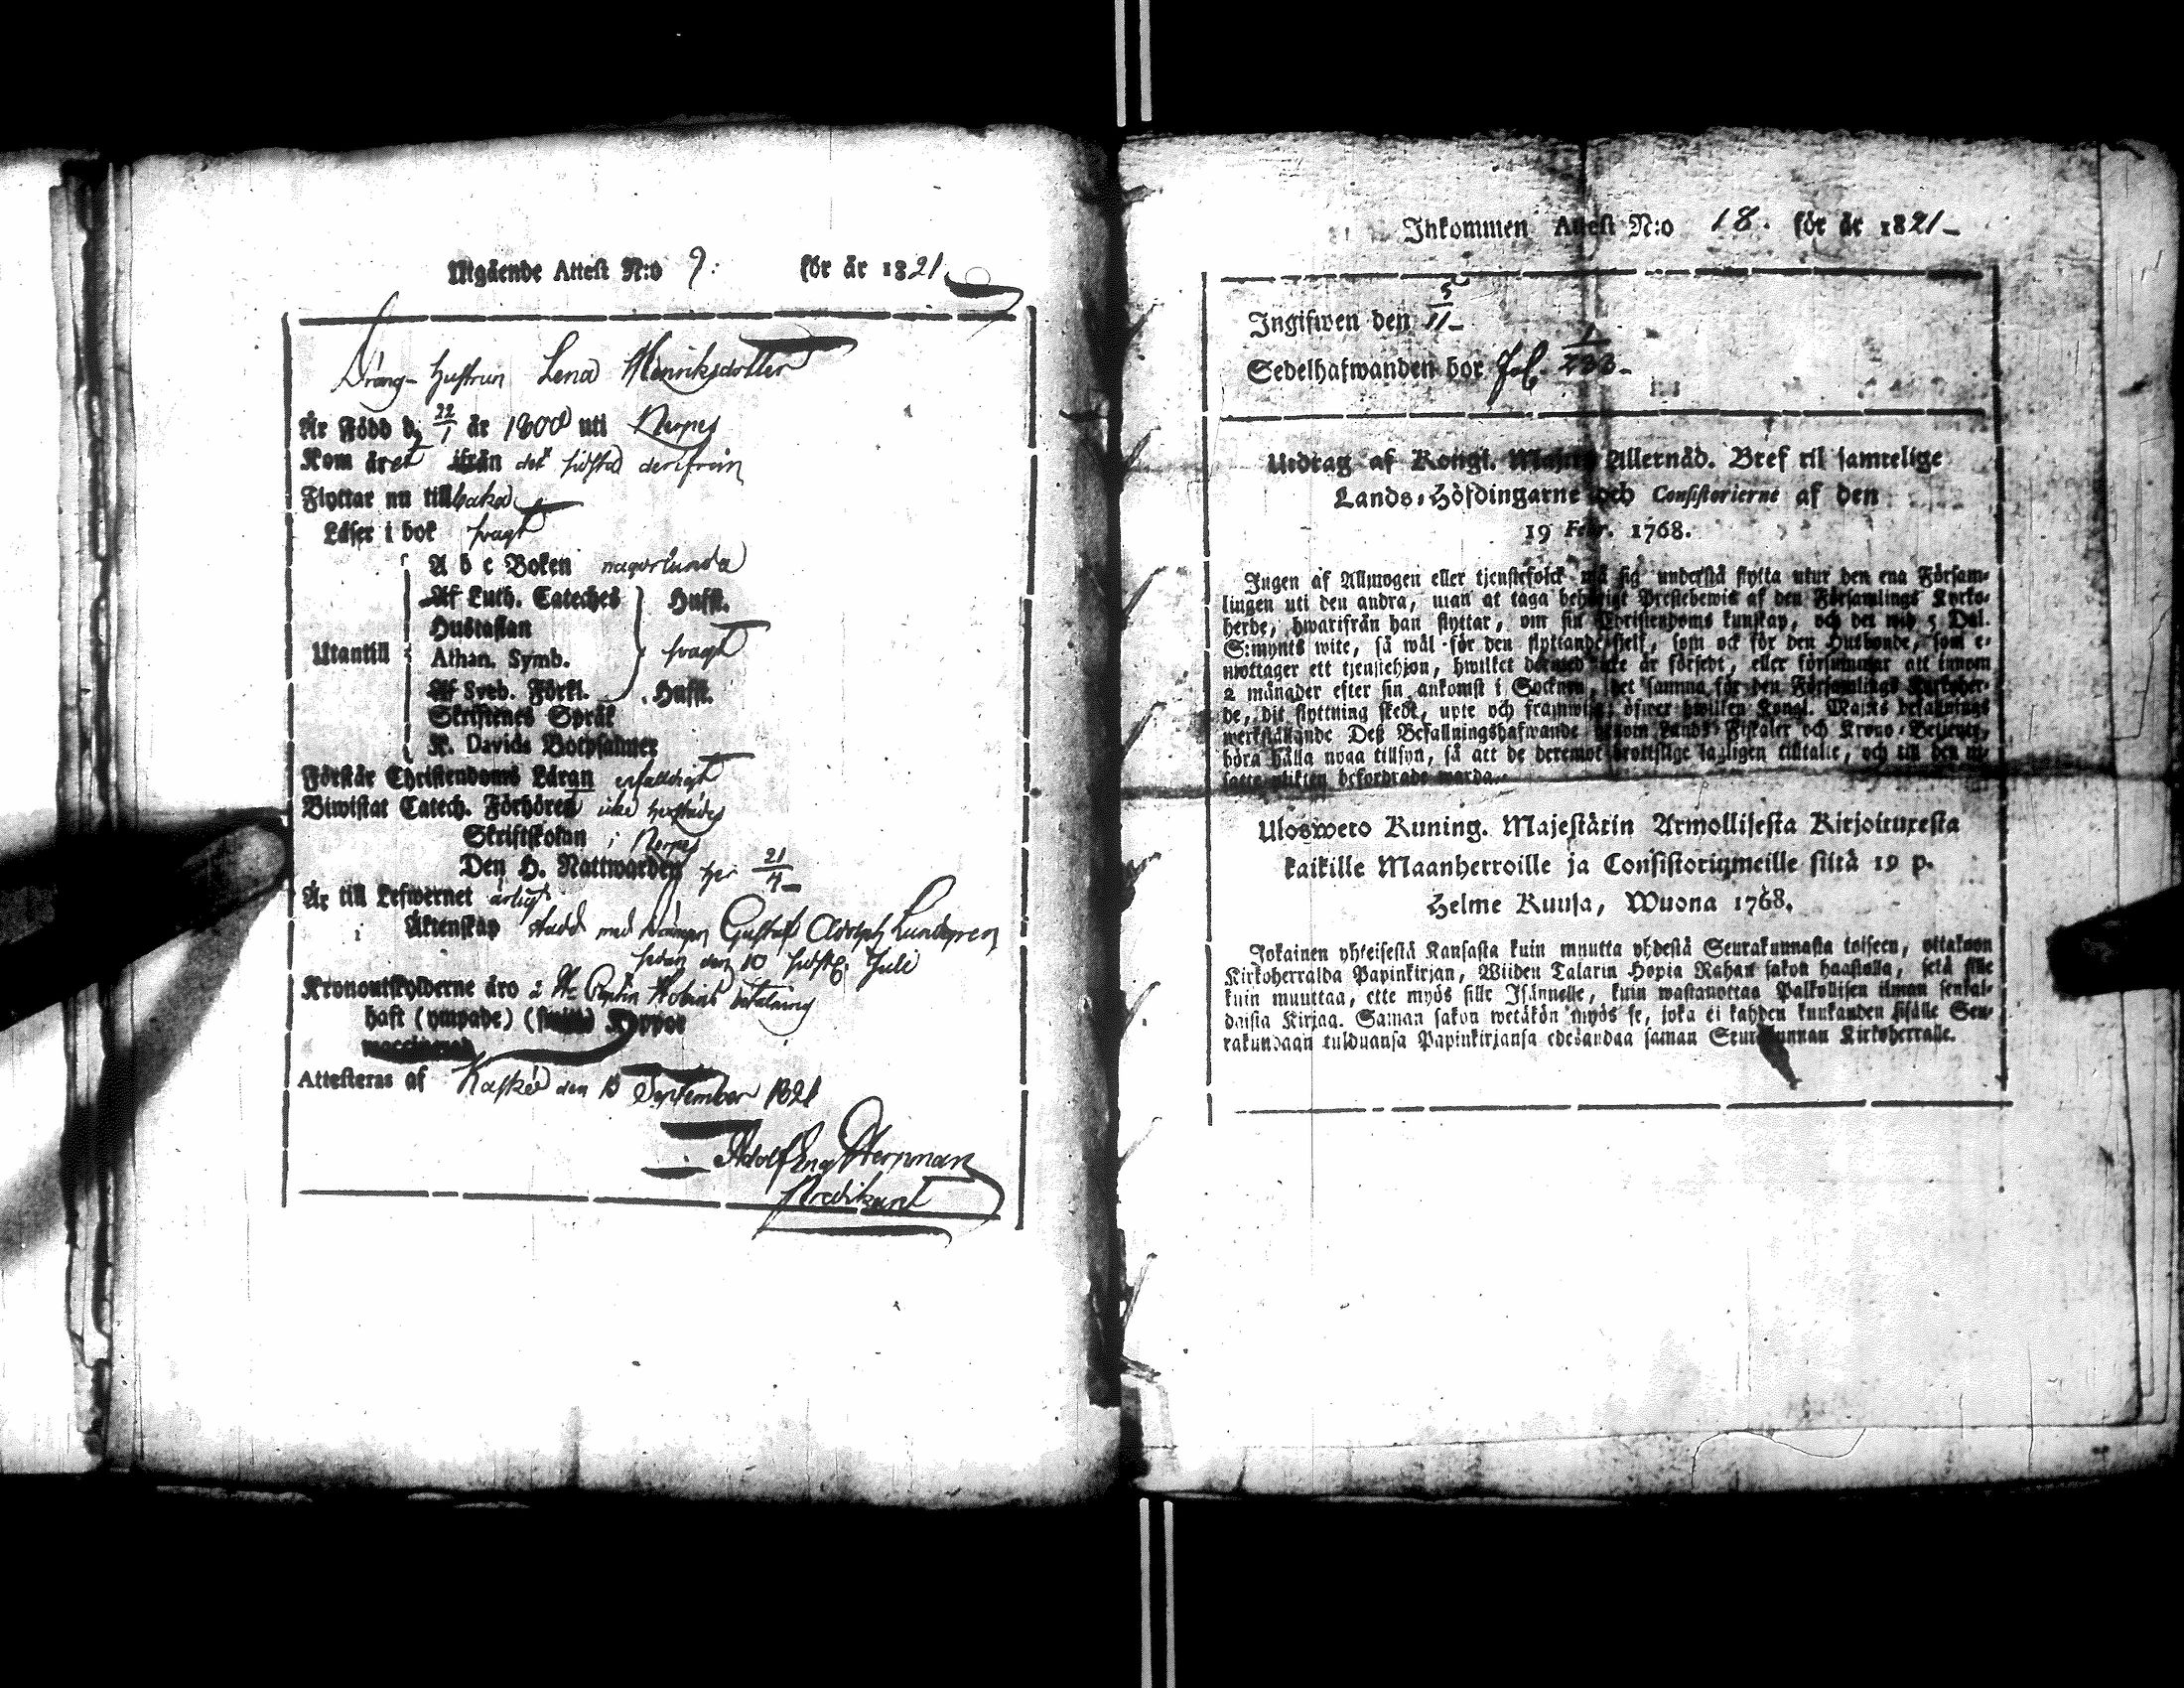 Utgående Attest N:o 9. för år 1821.
Dräng-hustrun Lena Henriksdotter
Är Född d. 22/1 år 1800 uti Nerpes
Kom året ifrån derifrån
Flyttar nu tillbaka
Läser i bok svagt
A b c Boken någorlunda
Af Luth. Cateches Hufst.
Hustaflan
Utantill Athan. Symb. svagt
Af Sveb. Förkl. Hufst.
Skriftenes Språk
K. Davids Botpsalmer
Förstår Christendoms Läran enfaldigt
Biwistat Catech. Förhören icke
Skriftskolan i Nerpes
Den H. Nattwarden här 21/4
Är till Lefwernet ärligt
i Äktenskap stadd med Drängen Gustaf Adolph Lundgren
sedan den 10 sidstl. Juli
Kronoutskylderne äro
haft (ympade) Koppor
Attesteras af Kaskö den 13 September 1821
Adolf Herrman
Predikant
Inkommen Attest N:o 18. för år 1821
Ingifwen den 5/11
Sedelhafwanden bor Fol. 233
Utdrag af Kongl. Majts Allernåd. Bref til samtelige
Lands-Höfdingarne och Consistorierne af den
19 Febr. 1768.
Ingen af Allmogen eller tjenstefolck må sig understå flytta utur den ena Försam-
lingen uti den andra, utan at taga behörigt Prestebewis af den Församlings Kyrko-
herde, hwarifrån han flyttar, om sin Christendoms kunskap, och det wid 5 Dal.
S:mynts wite, så wäl för den flyttande sjelf, som ock för den Husbonde, som e-
mottager ett tjenstehjon, hwilket dermed icke är försedt, eller försummar att innom
2 månader efter sin ankomst i Socknen, det samma för den Församlings Kyrkoher-
de, dit flyttning skedt, upte och framwisa; öfwer hwilken Kongl. Majts befallnings
werkställande Deß Befallningshafwande genom Lands-Fiskaler och Krono-Betjente,
böra hålla noga tillsyn, så att de deremot brottslige lagligen tilltalte, och till den ut-
satte plikten befordrade warda.
Uloswето Kuning. Majestätin Armollisesta Kirjoituxesta
kaikille Maanherroille ja Consistoriumeille siltä 19 p.
Helme Kuusa, Wuona 1768.
Jokainen yhteisestä Kansasta kuin muutta yhdestä Seurakunnasta toiseen, ottakoon
Kirkoherralda Papinkirjan, Wiiden Talarin Hopia Rahan sakon haastolla, sekä sille
kuin muuttaa, ette myös sille Isännelle, kuin wastanottaa Palkollisen ilman senkal-
daista Kirjaa. Saman sakon wetäkön myös se, joka ei kahden kuukauden sisälle Seu-
rakundaan tulduansa Papinkirjansa edesandaa saman Seurakunnan Kirkoherralle.